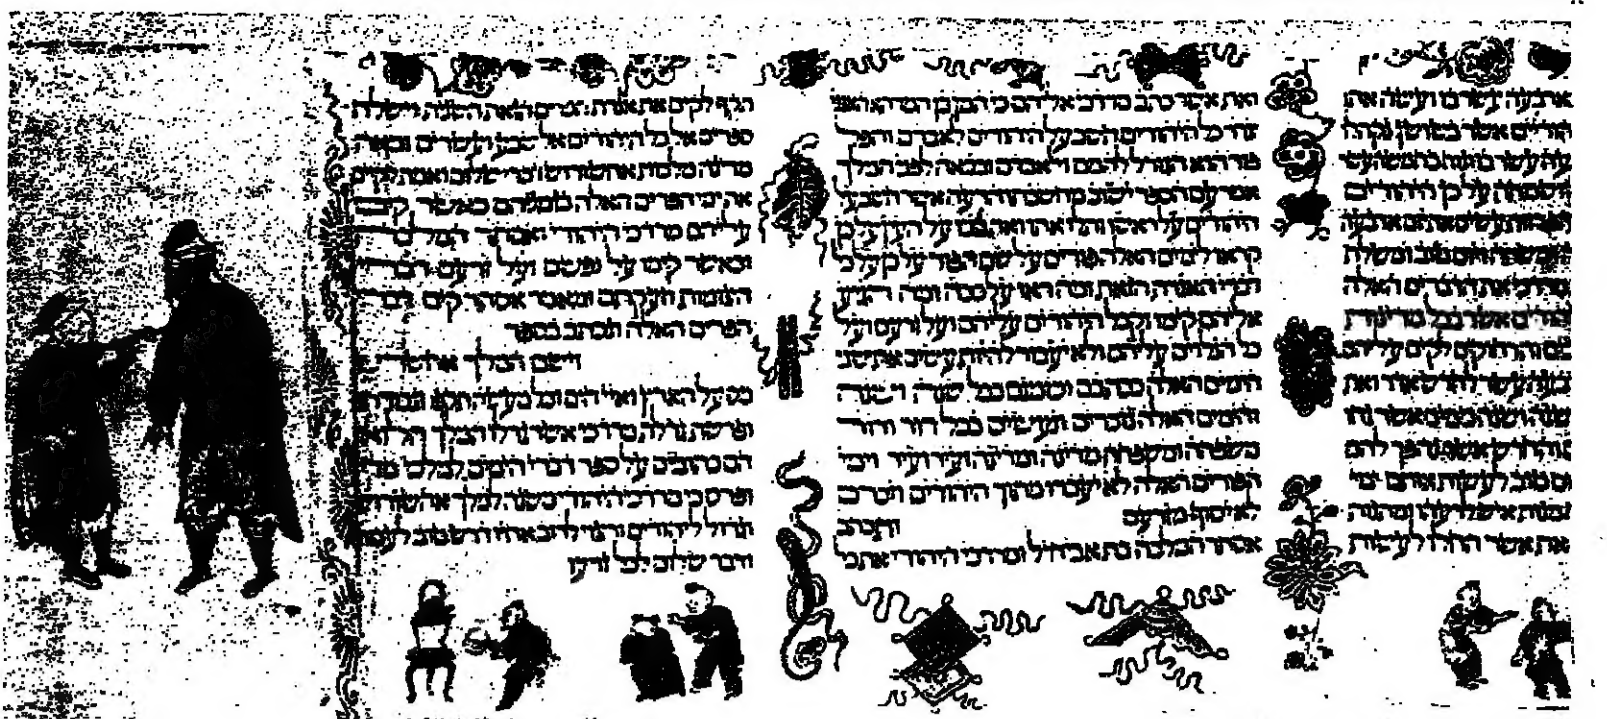 ארבעה עשר בו ועשה את
הודיים אשר בשושן נקהלו
עה עשר בו ונוח בחמשה עשר
ושמחה על כן היהודים
הפרזות עשים את יום ארבעה
ומשתה ויום טוב ומשלח
מרדכי את הדברים האלה
יהודים אשר בכל מדינות
ים והרחוקים לקים עליהם
בעה עשר לחדש אדר ואת
שנה ושנה כימים אשר נחו
והחדש אשר נהפך להם
ום טוב לעשות אותם ימי
ומנות איש לרעהו ומתנות
את אשר החלו לעשות
ואת אשר כתב מרדכי אליהם כי המן בן המדתא האגגי
צרר כל היהודים חשב על היהודים לאבדם והפל
פור הוא הגורל להמם ולאבדם ובבאה לפני המלך
אמר עם הספר ישוב מחשבתו הרעה אשר חשב על
היהודים על ראשו ותלו אתו ואת בניו על העץ על כן
קראו לימים האלה פורים על שם הפור על כן על כל
דברי האגרת הזאת ומה ראו על ככה ומה הגיע
אליהם קימו וקבל היהודים עליהם ועל זרעם ועל
כל הנלוים עליהם ולא יעבור להיות עשים את שני
הימים האלה ככתבם וכזמנם בכל שנה ושנה
והימים האלה נזכרים ונעשים בכל דור ודור
משפחה ומשפחה מדינה ומדינה ועיר ועיר וימי
הפורים האלה לא יעברו מתוך היהודים וזכרם
לא יסוף מזרעם ותכתב
אסתר המלכה בת אביחיל ומרדכי היהודי את כל
תקף לקים את אגרת הפרים הזאת השנית וישלח
ספרים אל כל היהודים אל שבע ועשרים ומאה
מדינה מלכות אחשורוש דברי שלום ואמת לקים
את ימי הפרים האלה בזמניהם כאשר קים
עליהם מרדכי היהודי ואסתר המלכה
וכאשר קימו על נפשם ועל זרעם דברי
הצומות וזעקתם ומאמר אסתר קים דברי
הפרים האלה ונכתב בספר
וישם המלך אחשרש
מס על הארץ ואיי הים וכל מעשה תקפו וגבורתו
ופרשת גדלת מרדכי אשר גדלו המלך הלוא
הם כתובים על ספר דברי הימים למלכי מדי
ופרס כי מרדכי היהודי משנה למלך אחשורוש
וגדול ליהודים ורצוי לרב אחיו דרש טוב לעמו
ודבר שלום לכל זרעו